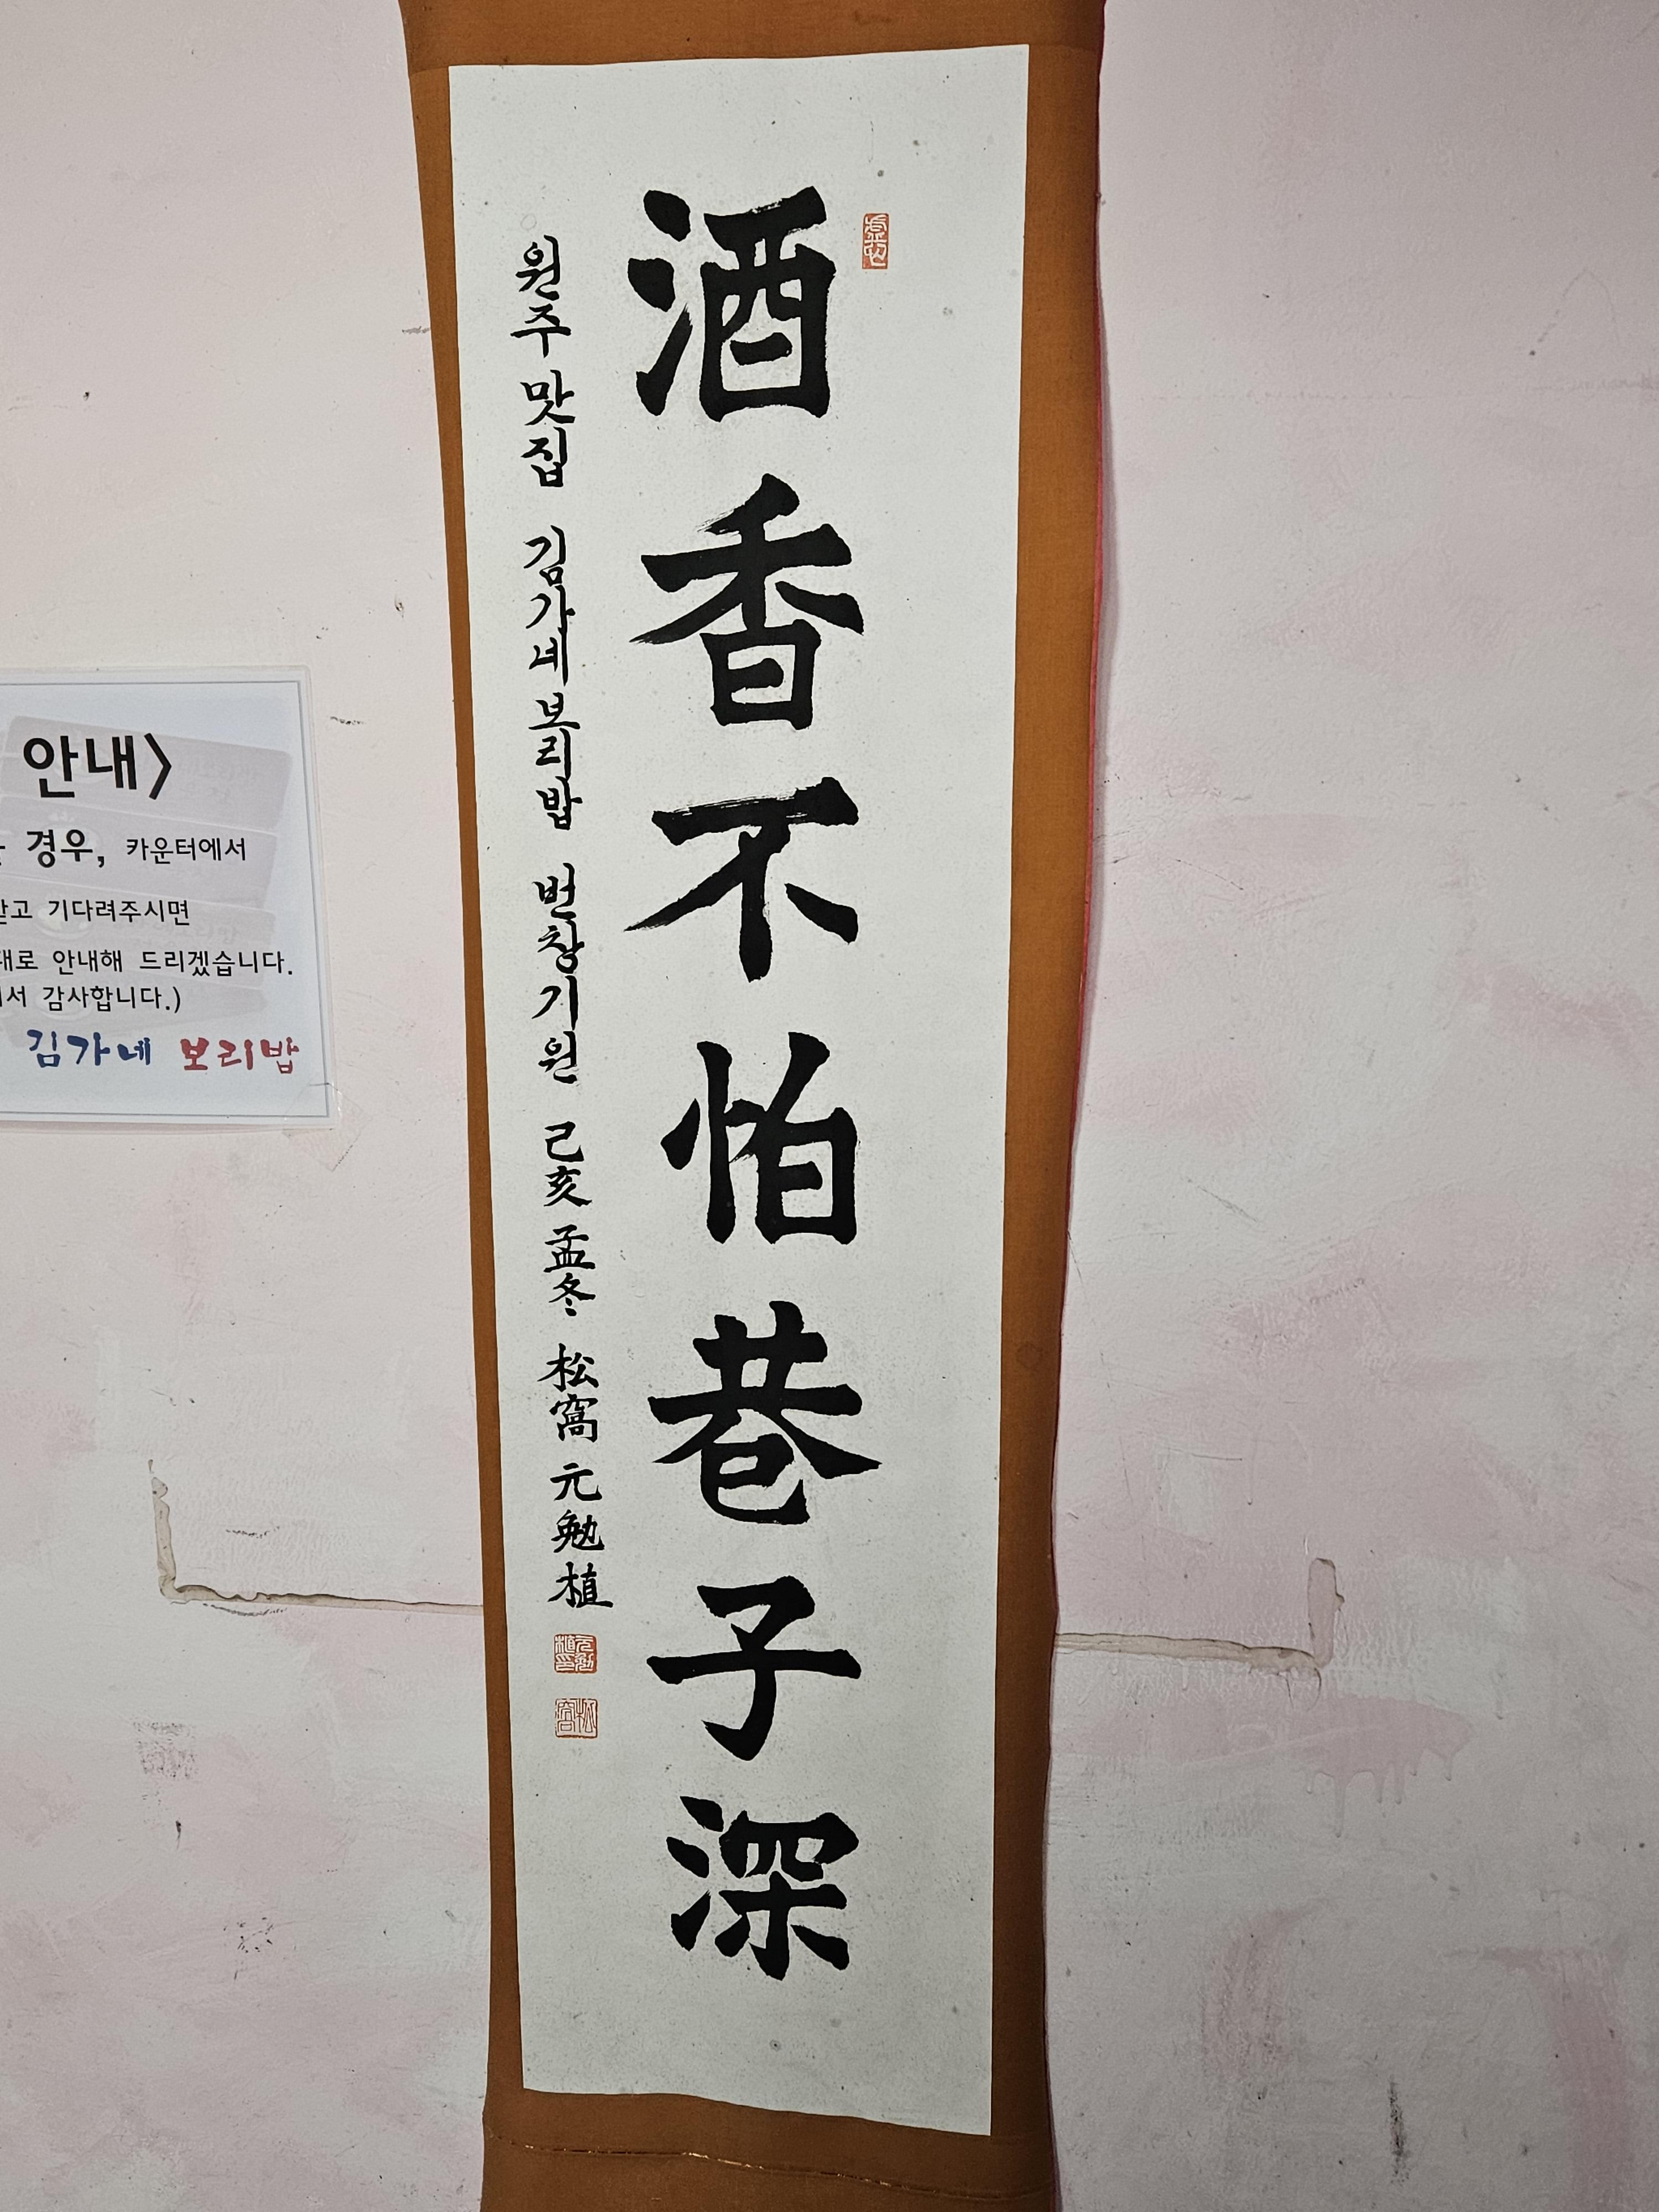 酒香不怕巷子深
원주 맛집 김가네보리밥 번창기원 己亥 孟冬 松窩 元勉植
안내>
경우, 카운터에서
기다려주시면
안내해 드리겠습니다.
감사합니다.)
김가네 보리밥